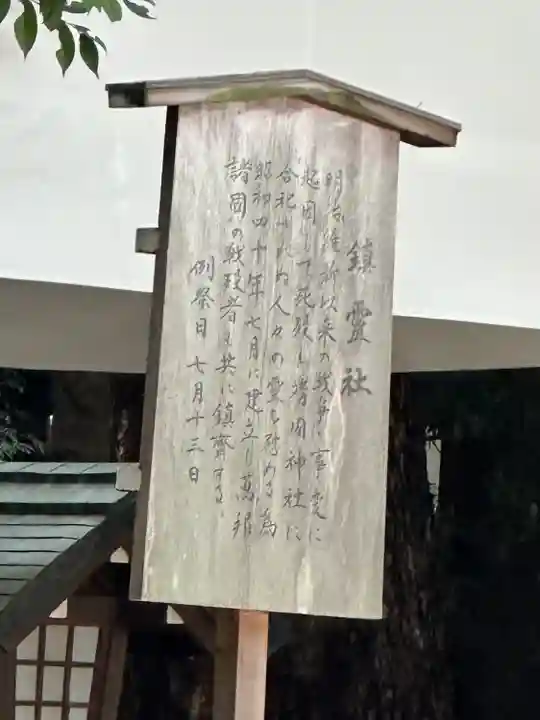 鎮霊社
明治維新以来の戦争・事変に
起因して死歿し靖国神社に
合祀されぬ人々の霊を慰める為
昭和四十年七月に建立し萬邦
諸國の戦歿者も共に鎮斎する。
例祭日 七月十三日